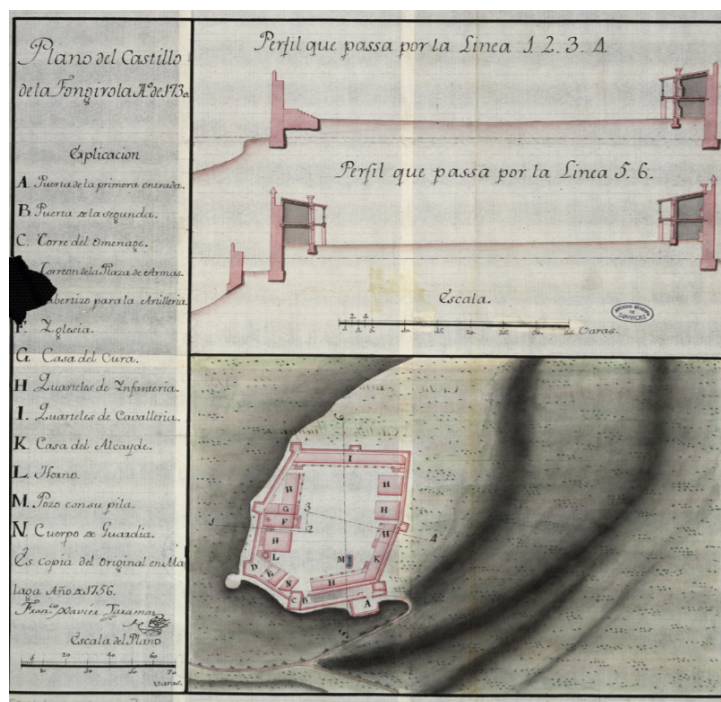 Plano del Castillo
de la Fongirola Aº de 1730
Explicacion
A. Puerta de la primera entrada.
B. Puerta de la segunda.
C. Torre del Omenage.
Torreon de la Plaza de Armas.
para la Artilleria
F. Yglesia.
G. Casa del Cura.
H Quarteles de Ynfanteria.
I. Quarteles de Cavalleria.
K. Casa del Alcayde.
L. Horno
M. Pozo con su pila.
N. Cuerpo de Guardia.
Es copia del Original en Ma
laga Año de 1756.
Escala del Plano
20 40 60
Varas.
Perfil que passa por la Linea 1. 2. 3. 4.
Perfil que passa por la Linea 5. 6.
Escala.
Varas.
ARCHIVO GENERAL
DE
SIMANCAS
I
H
H
G
3
F
H
1
2
4
H
H
L
M
K
D
E
N
H
C
B
A